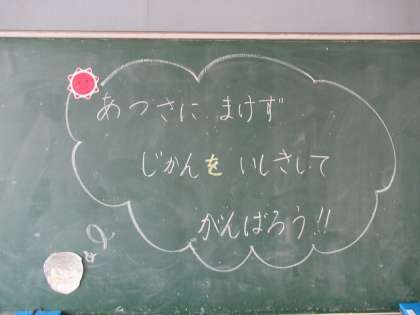 あつさに まけず
じかんを いしきして
がんばろう!!